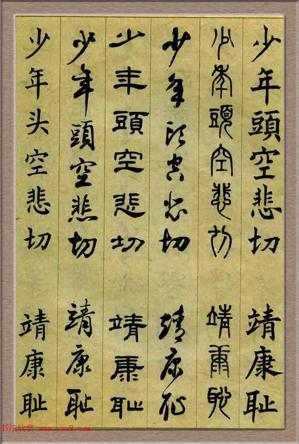 少年頭空悲切 靖康耻
少年頭空悲切 靖康恥
少年頭空悲切 靖康耻
少年頭空悲切 靖康耻
少年頭空悲切 靖康耻
少年头空悲切 靖康耻